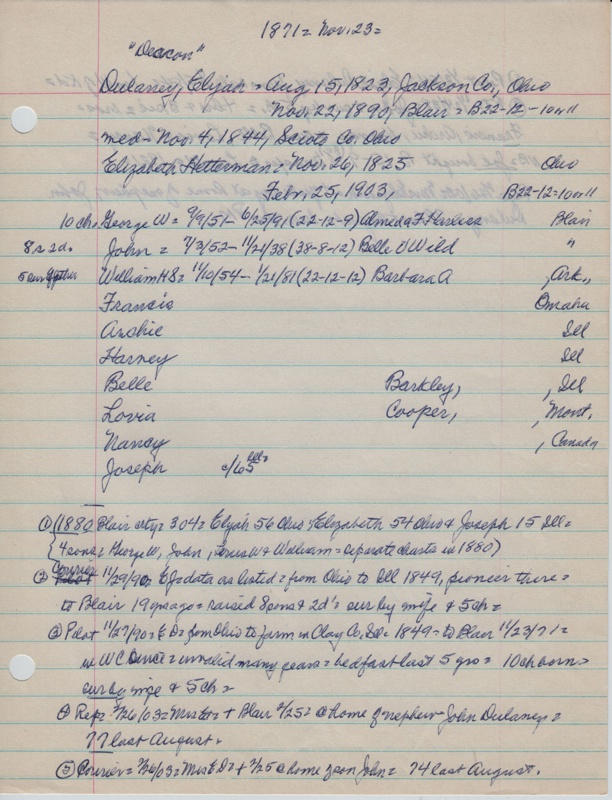 1871= Nov. 23=
"Deacon"
Dulaney, Elijah = Aug, 15, 1823, Jackson Co., Ohio
Nov. 22, 1890, Blair = B22-12-10w11
med- Nov. 4, 1844, Scioto Co. Ohio
Elizabeth Hetterman = Nov. 26, 1825 Ohio
Febr. 25, 1903, B22-12=10w11
10 chs George W = 9/9/51- 6/25/91 (22-12-9) Almeda F Harless Blair
8s 2ds John = 9/3/52- 11/21/38 (38-8-12) Belle V Wild "
5 sur of father William H S = 11/10/54- 1/21/81 (22-12-12) Barbara A , Ark.,
Francis Omaha
Archie Ill
Harney Ill
Belle Barkley, , Ill
Lovia Cooper, , Mont.
Nancy , Canada
Joseph c/65 Ill=
① 1880 Blair city= 304= Elijah 56 Ohio Elizabeth 54 Ohio & Joseph 15 Ill=
4 sons= George W, John, & William = separate charts in 1880)
② Courier 11/29/90= EJ= data as listed= from Ohio to Ill 1849, pioneer there=
to Blair 19 yrs ago= raised 8 sons & 2d's sur by wife & 5 ch=
③ Pilot 11/27/90= E D= from Ohio to farm in Clay Co. Ill= 1849= to Blair 11/23/71=
in W C since= invalid many years= bedfast last 5 yrs= 10 ch born=
sur by wife & 5 ch=
④ Rep= 3/26/03= Mrs = + Blair 2/25= @ home of nephew John Dulaney=
77 last August=
⑤ Courier= 3/26/03= Mrs E D= + 2/25 @ home of son John= 74 last August.